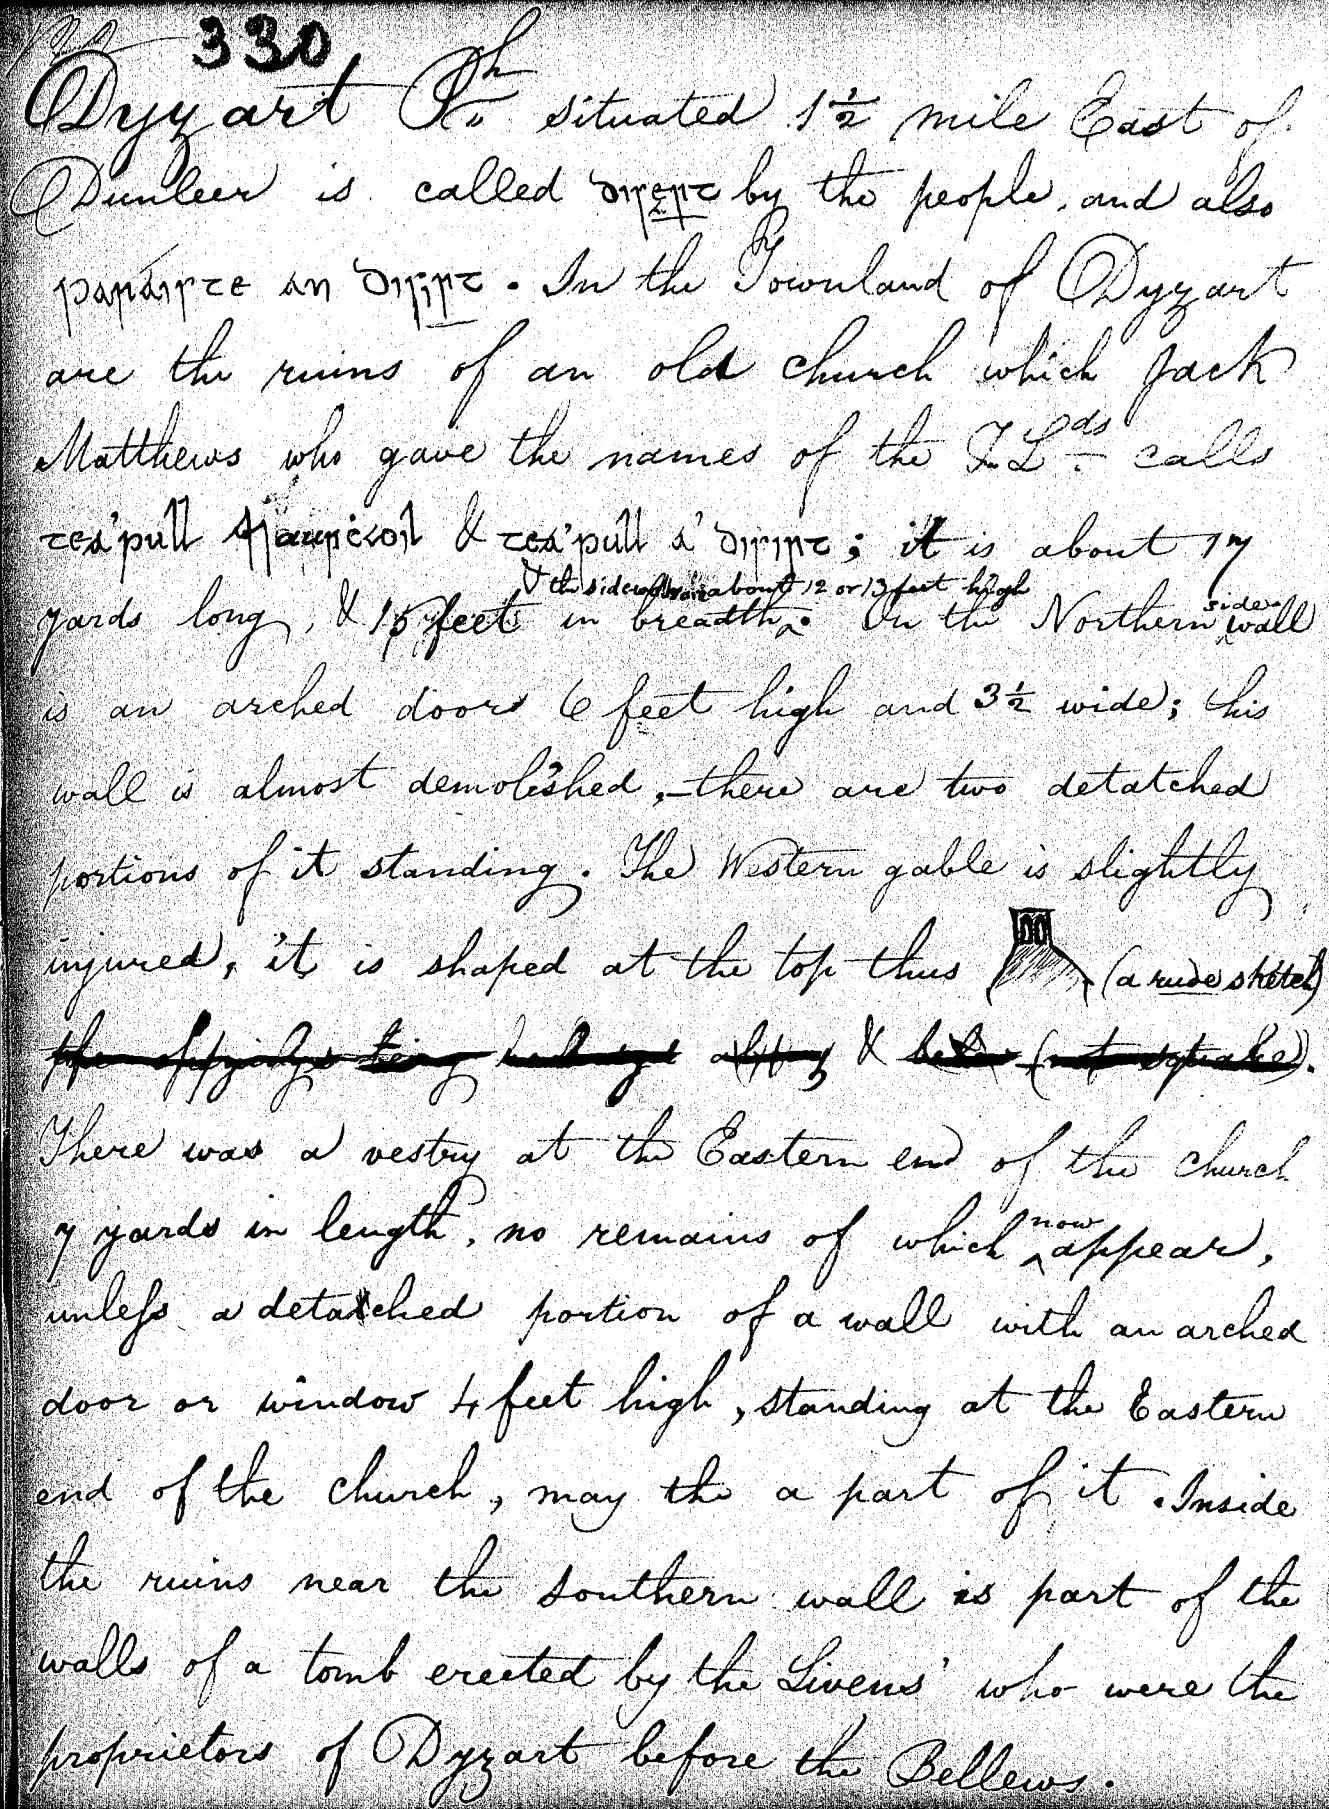 330
Dyzart Ph situated 1½ mile East of
Dunleer is called by the people, and also
paráirte an Dirirt. In the Townland of Dyzart
are the ruins of an old church which Jack
Matthews who gave the names of the T.Lds calls
tea'pull & tea'pull a' dirirt; it is about 17
& the sidewalls are about 12 or 13 feet high
yards long, & 15 feet in breadth. On the Northern side wall
is an arched door 6 feet high and 3½ wide; this
wall is almost demolished, – there are two detatched
portions of it standing. The Western gable is slightly
injured, it is shaped at the top thus (a rude sketch)
&
There was a vestry at the Eastern end of the church
7 yards in length, no remains of which now appear,
unless a detached portion of a wall with an arched
door or window 4 feet high, standing at the Eastern
end of the church, may the a part of it. Inside
the ruins near the southern wall is part of the
walls of a tomb erected by the Livens' who were the
proprietors of Dyzart before the Bellews.